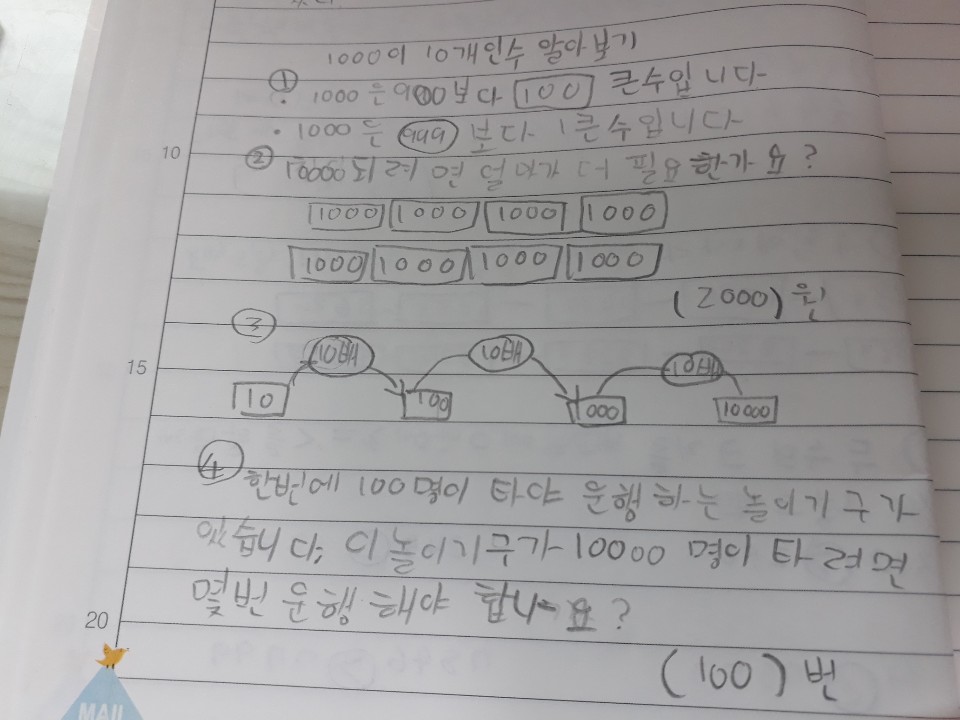 10000이 10개인수 알아보기
①
· 1000은 900보다 100 큰수입니다
· 1000은 999 보다 1큰수입니다
② 10000이 되려면 얼마가 더 필요한가요?
1000 1000 1000 1000
1000 1000 1000 1000
(2000)원
③
10배 10배 10배
10 100 1000 10000
④ 한번에 100명이 타야 운행하는 놀이기구가
있습니다. 이 놀이기구가 10000명이 타려면
몇번 운행해야 요?
(100)번
10
15
20
MAIL